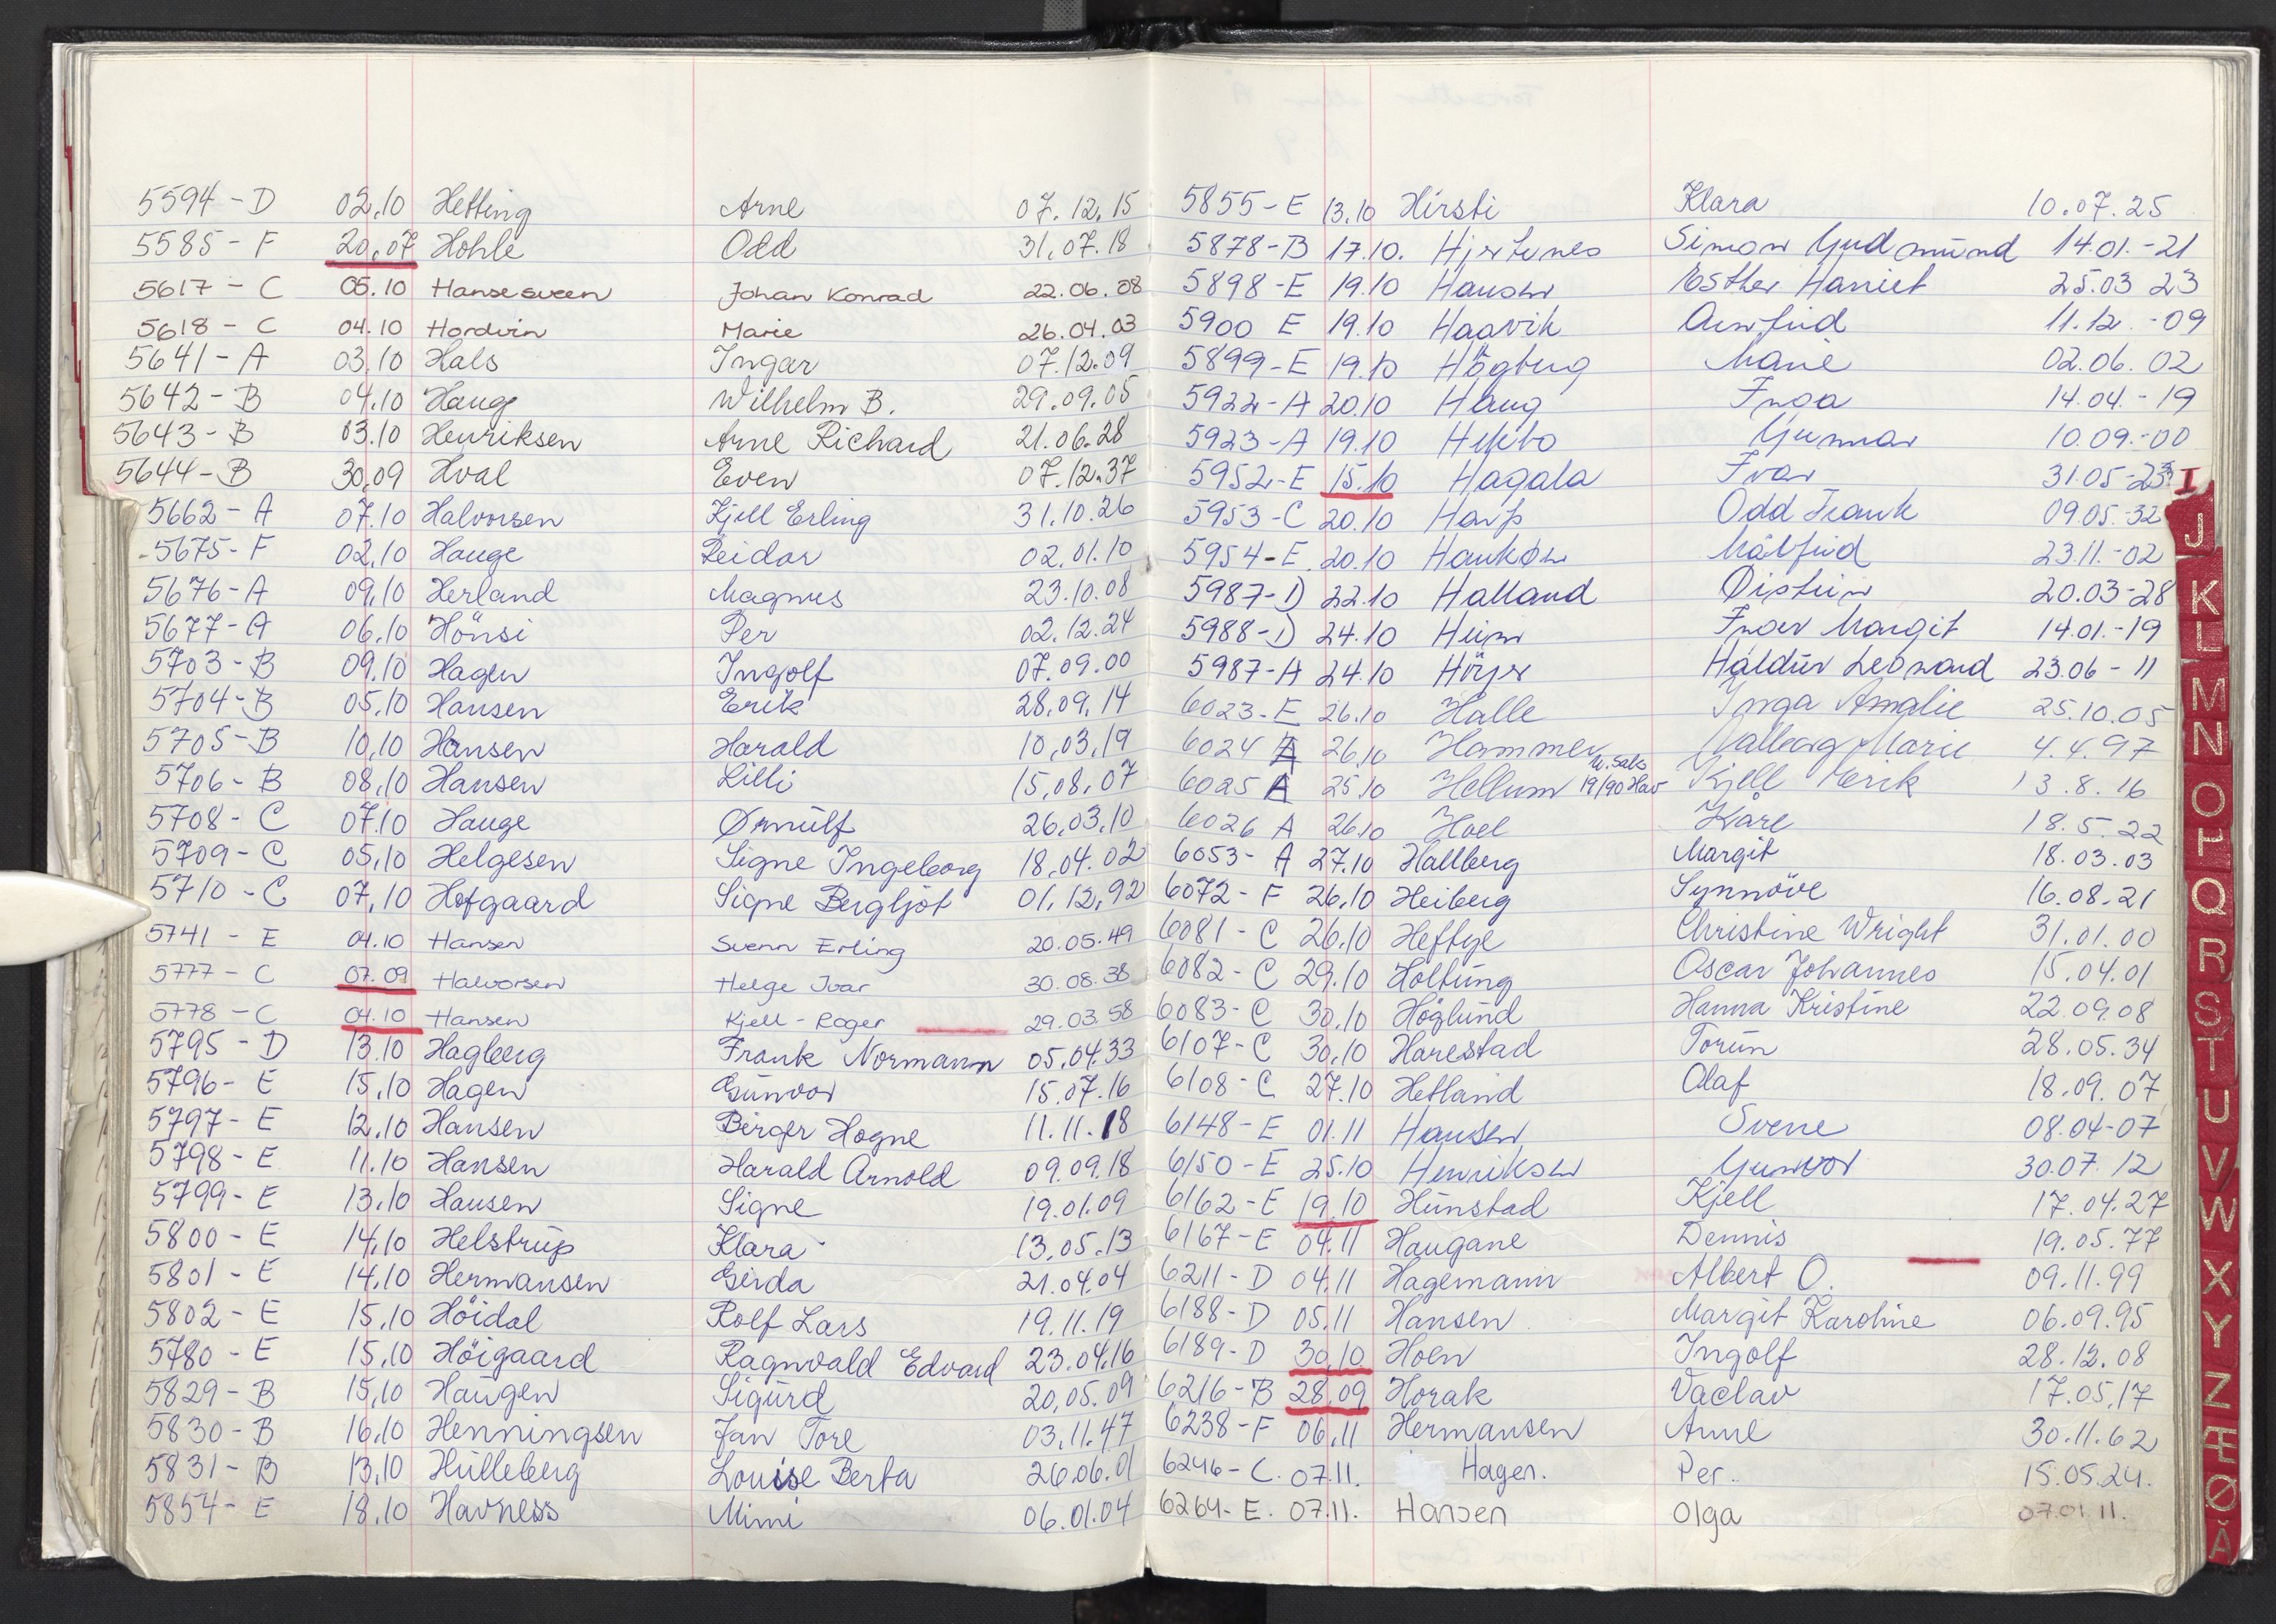 5594 - D 02.10 Hetting Arne 07.12.15
5585 - F 20.07 Hohle Odd 31.07.18
5617 - C 05.10 Hansesveen Johan Konrad 22.06.08
5618 - C 04.10 Hordvin Marie 26.04.03
5641 - A 03.10 Hals Ingar 07.12.09
5642 - B 04.10 Hauge Wilhelm B. 29.09.05
5643 - B 03.10 Henriksen Arne Richard 21.06.28
5644 - B 30.09 Hval Even 07.12.37
5662 - A 07.10 Halvorsen Kjell Erling 31.10.26
5675 - F 02.10 Hauge Reidar 02.01.10
5676 - A 09.10 Herland Magnus 23.10.08
5677 - A 06.10 Hönsi Per 02.12.24
5703 - B 09.10 Hagen Ingolf 07.09.00
5704 - B 05.10 Hansen Erik 28.09.14
5705 - B 10.10 Hansen Harald 10.03.19
5706 - B 08.10 Hansen Lilli 15.08.07
5708 - C 07.10 Hauge Ørnulf 26.03.10
5709 - C 05.10 Helgesen Signe Ingeborg 18.04.02
5710 - C 07.10 Hofgaard Signe Bergljot 01.12.92
5741 - E 04.10 Hansen Svenn Erling 20.05.49
5777 - C 07.09 Halvorsen Helge Ivar 30.08.38
5778 - C 04.10 Hansen Kjell - Roger 29.03.58
5795 - D 13.10 Hagberg Frank Normann 05.04.33
5796 - E 15.10 Hagen Gunvor 15.07.16
5797 - E 12.10 Hansen Birger Hogne 11.11.18
5798 - E 11.10 Hansen Harald Arnold 09.09.18
5799 - E 13.10 Hansen Signe 19.01.09
5800 - E 14.10 Helstrup Klara 13.05.13
5801 - E 14.10 Hermansen Gerda 21.04.04
5802 - E 15.10 Höidal Rolf Lars 19.11.19
5780 - E 15.10 Höigaard Ragnvald Edvard 23.04.16
5829 - B 15.10 Haugen Sigurd 20.05.09
5830 - B 16.10 Henningsen Jan Tore 03.11.47
5831 - B 13.10 Hulleberg Louise Berta 26.06.01
5854 - E 18.10 Havness Mimi 06.01.04
5855 - E 13.10 Hirsti Klara 10.07.25
5878 - B 17.10. Hjertenes Simon Gudmund 14.01.-21
5898 - E 19.10 Hansen Esther Harriet 25.03 23
5900 E 19.10 Haavik Arnfrid 11.12.-09
5899 - E 19.10 Högberg Marie 02.06.02
5922 - A 20.10 Haug Inga 14.04.-19
5923 - A 19.10 Gunnar 10.09.-00
5952 - E 15.10 Hagala Ivar 31.05-23
5953 - C 20.10 Harp Odd Frank 09.05.-32
5954 - E 20.10 Målfrid 23.11.-02
5987 - D 22.10 Halland Øistein 20.03-28
5988 - D 24.10 Heim Inger Margit 14.01.-19
5987 - A 24.10 Haldur Leonard 23.06-11
6023 - E 26.10 Halle Inga Amalie 25.10.05
6024 A 26.10 Hammer Valborg Marie 4.4.97
6025 A 25.10 Hellum 19/90 Kjell Erik 13.8.16
6026 A 26.10 Hoel Kåre 18.5.22
6053 - A 27.10 Hallberg Margit 18.03.03
6072 - F 26.10 Heiberg Synnöve 16.08.21
6081 - C 26.10 Heftye Christine Wright 31.01.00
6082 - C 29.10 Holtung Oscar Johannes 15.04.01
6083 - C 30.10 Höglund Hanna Kristine 22.09.08
6107 - C 30.10 Harestad Torun 28.05.34
6108 - C 27.10 Hetland Olaf 18.09.07
6148 - E 01.11 Hansen Svene 08.04-07
6150 - E 25.10 Henriksen Gunvor 30.07.12
6162 - E 19.10 Hunstad Kjell 17.04.27
6167 - E 04.11 Haugane Dennis 19.05.77
6211 - D 04.11 Hagemann Albert O. 09.11.99
6188 - D 05.11 Hansen Margit Karoline 06.09.95
6189 - D 30.10 Hoen Ingolf 28.12.08
6216 - B 28.09 Horak Vaclav 17.05.17
6238 - F 06.11 Hermansen Anne 30.11.62
6246 - C. 07.11. Hagen. Per. 15.05.24.
6264 - E. 07.11. Hansen Olga 07.01.11.
I
J
K
L
M
N
O
P
Q
R
S
T
U
V
W
X
Y
Z
Æ
Ø
Å